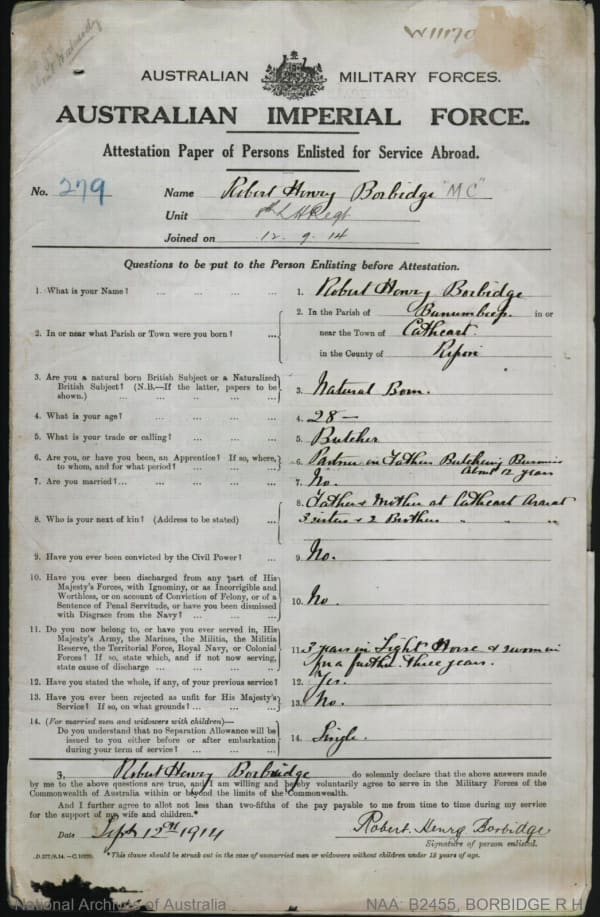 W11170
AUSTRALIAN MILITARY FORCES.
AUSTRALIAN IMPERIAL FORCE.
Attestation Paper of Persons Enlisted for Service Abroad.
No. 279 Name Robert Henry Borbidge "MC"
Unit 8th L H Regt
Joined on 12. 9. 14
Questions to be put to the Person Enlisting before Attestation.
1. What is your Name? ... ... ... ... 1. Robert Henry Borbidge
2. In or near what Parish or Town were you born? ... 2. In the Parish of Bunumbeep. in or
near the Town of Cathcart.
in the County of Ripon
3. Are you a natural born British Subject or a Naturalized
British Subject? (N.B.—If the latter, papers to be
shown.) ... ... ... ... ... 3. Natural Born.
4. What is your age? ... ... ... ... 4. 28 —
5. What is your trade or calling? ... ... ... 5. Butcher
6. Are you, or have you been, an Apprentice? If so, where,
to whom, and for what period? ... ... ... 6. Partner in Fathers Butchering Business
About 12 years
7. Are you married?... ... ... ... ... 7. No.
8. Who is your next of kin? (Address to be stated) ... 8. Father & Mother at Cathcart Ararat
3 sisters & 2 Brothers " " "
9. Have you ever been convicted by the Civil Power? ... 9. No.
10. Have you ever been discharged from any part of His
Majesty's Forces, with Ignominy, or as Incorrigible and
Worthless, or on account of Conviction of Felony, or of a
Sentence of Penal Servitude, or have you been dismissed
with Disgrace from the Navy? ... ... ... 10. No.
11. Do you now belong to, or have you ever served in, His
Majesty's Army, the Marines, the Militia, the Militia
Reserve, the Territorial Force, Royal Navy, or Colonial
Forces? If so, state which, and if not now serving,
state cause of discharge ... ... ... ... 11. 3 years in Light Horse & sworn in
for a further three years.
12. Have you stated the whole, if any, of your previous service? 12. Yes.
13. Have you ever been rejected as unfit for His Majesty's
Service? If so, on what grounds? ... ... ... 13. No.
14. (For married men and widowers with children)—
Do you understand that no Separation Allowance will be
issued to you either before or after embarkation
during your term of service? ... ... ... 14. Single.
I, Robert Henry Borbidge do solemnly declare that the above answers made
by me to the above questions are true, and I am willing and hereby voluntarily agree to serve in the Military Forces of the
Commonwealth of Australia within or beyond the limits of the Commonwealth.
And I further agree to allot not less than two-fifths of the pay payable to me from time to time during my service
for the support of my wife and children.*
Date Sept 12th 1914 Robert. Henry Borbidge
Signature of person enlisted.
*This clause should be struck out in the case of unmarried men or widowers without children under 18 years of age.
National Archives of Australia NAA: B2455, BORBIDGE R H